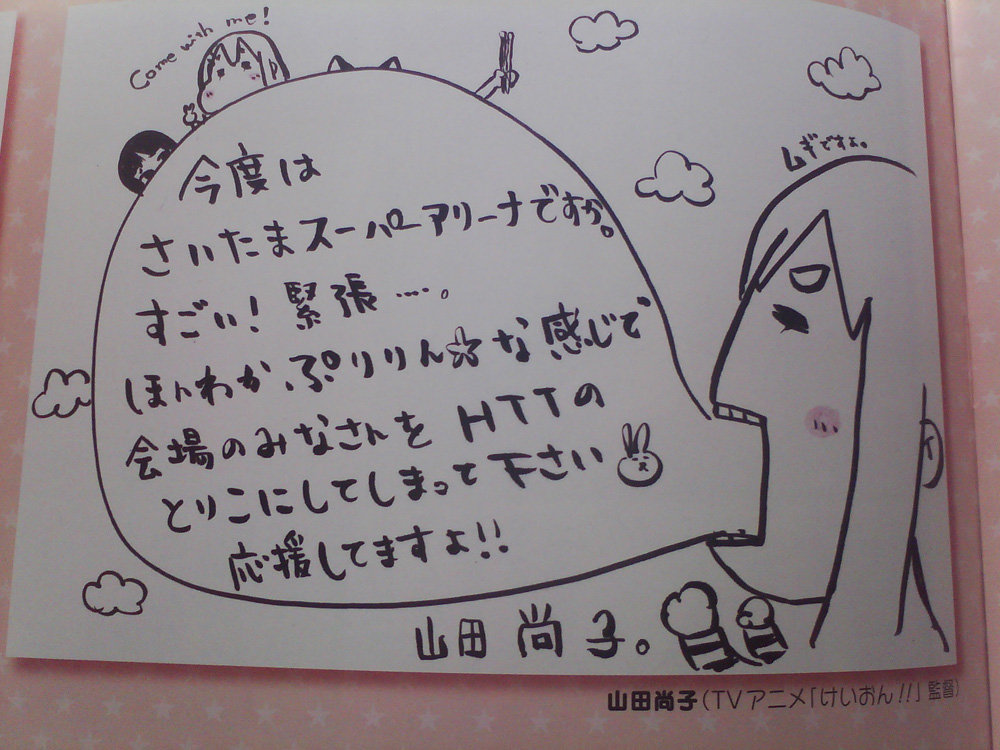 Come with me!
ムギですよ。
今度は
さいたまスーパーアリーナですか。
すごい!緊張….。
ほんわかぷりりん☆な感じで
会場のみなさんをHTTの
とりこにしてしまって下さい
応援してますよ!!
山田尚子。
山田尚子(TVアニメ「けいおん!!」監督)